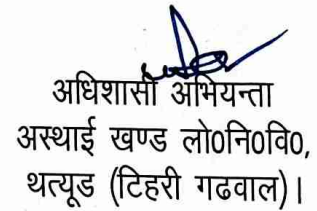 अधिशासी अभियन्ता
अस्थाई खण्ड लो०नि०वि०,
थत्यूड (टिहरी गढवाल)।